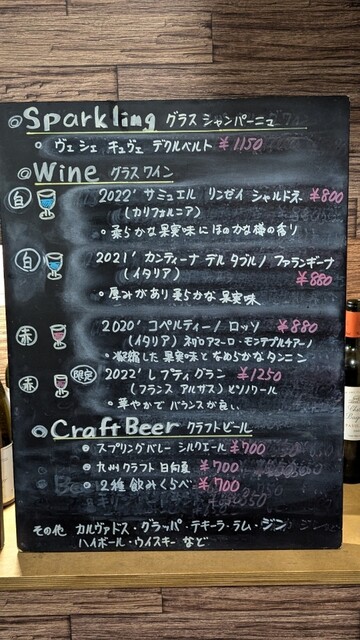 ◎Sparkling グラス シャンパーニュ
• ヴェシェ キュヴェ デクルベルト ¥1150
◎Wine グラスワイン
白 2022' サミュエル リンゼイ シャルドネ ¥800
(カリフォルニア)
• 柔らかな果実味にほのかな樽の香り
白 2021' カンティーナ デル タブルノ ファランギーナ
(イタリア) ¥880
• 厚みがあり柔らかな果実味
赤 2020' コペルティーノ ロッソ ¥880
(イタリア) ネグロアマーロ・モンテプルチアーノ
• 凝縮した果実味となめらかなタンニン
赤 限定 2022' レプティグラン ¥1250
(フランス アルザス) ピノノワール
• 華やかでバランスが良い
◎Craft Beer クラフトビール
◎ スプリングバレー シルクエール ¥700
◎ 九州クラフト 日向夏 ¥700
◎ 2種飲みくらべ ¥700
その他 カルヴァドス・グラッパ・テキーラ・ラム・ジン
ハイボール・ウイスキー など